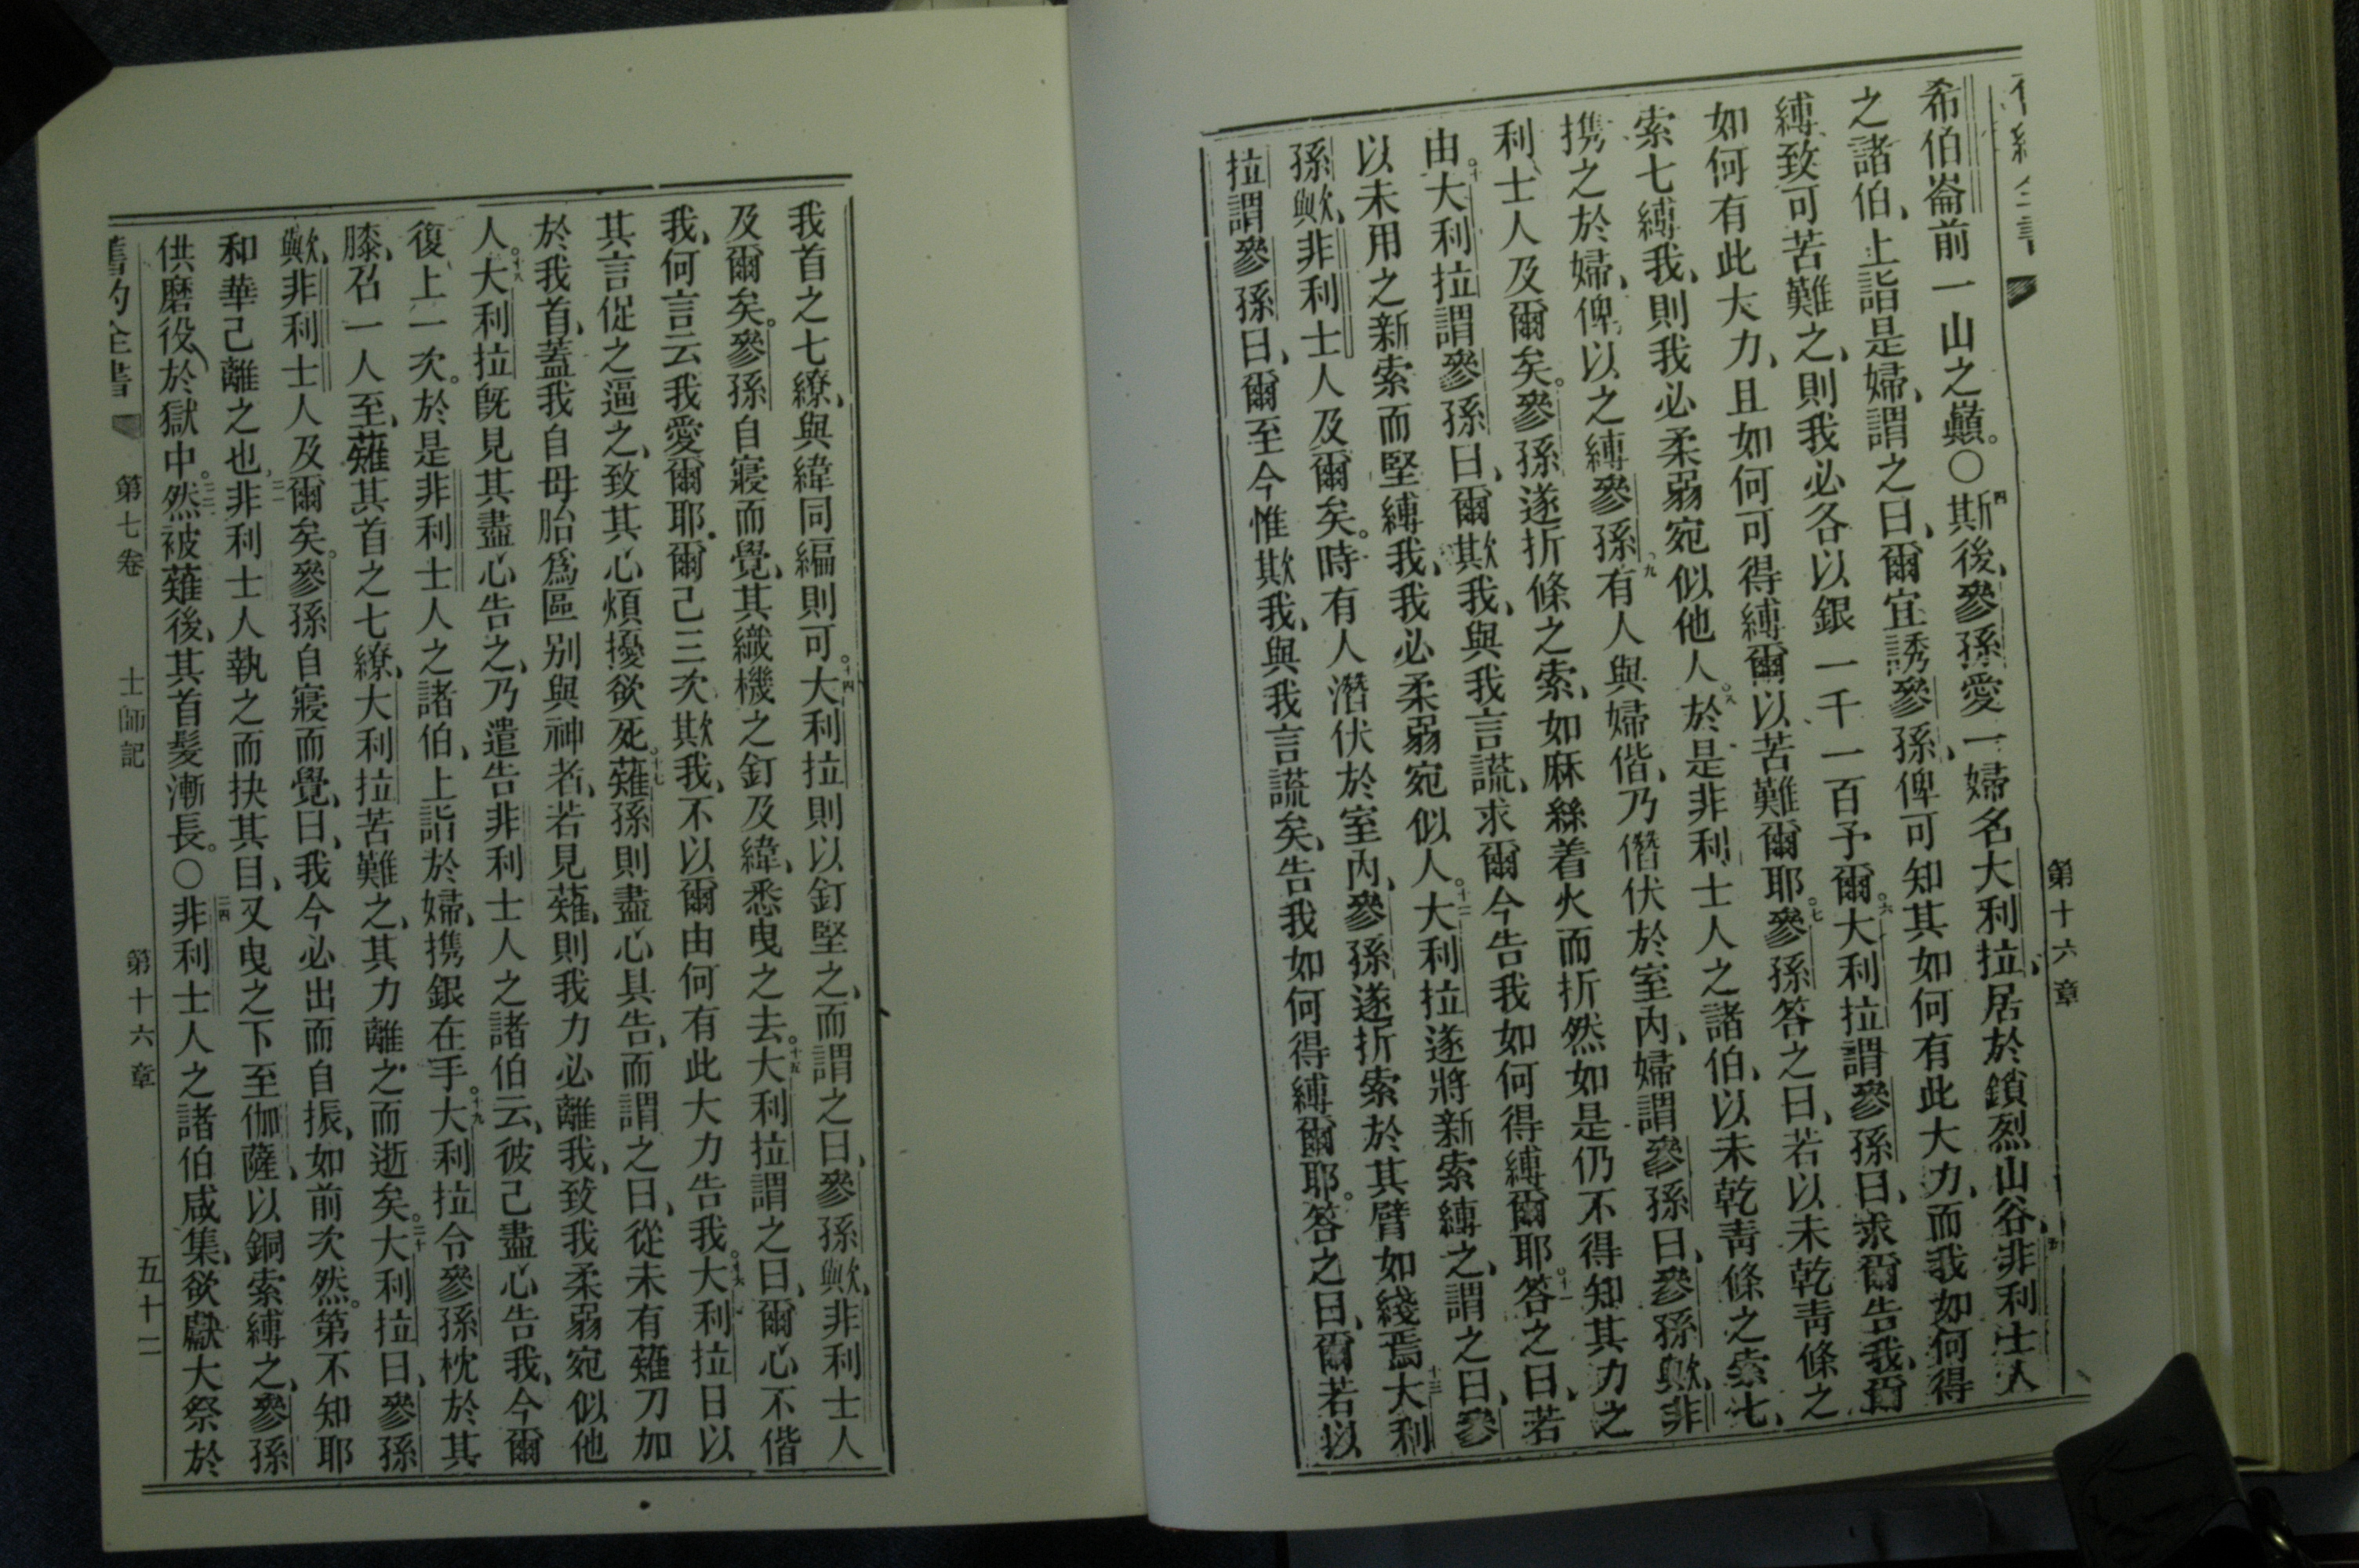 第十六章
希伯崙前一山之巓。〇四斯後、參孫愛一婦名大利拉、居於鎖烈山谷、五非利士人
之諸伯、上詣是婦、謂之曰、爾宜誘參孫、俾可知其如何有此大力、而我如何得
縛、致可苦難之、則我必各以銀一千一百予爾。六大利拉謂參孫曰、求爾告我、爾
如何有此大力、且如何可得縛爾以苦難爾耶。七參孫答之曰、若以未乾靑條之
索七縛我、則我必柔弱宛似他人。八於是非利士人之諸伯、以未乾靑條之索七、
携之於婦、俾以之縛參孫。九有人與婦偕、乃僭伏於室內、婦謂參孫曰、參孫歟、非
利士人及爾矣。參孫遂折條之索、如麻絲着火而折然如是仍不得知其力之
由。十大利拉謂參孫曰、爾欺我、與我言謊、求爾今告我如何得縛爾耶。十一答之曰、若
以未用之新索而堅縛我、我必柔弱宛似人。十二大利拉遂將新索縛之、謂之曰、參
孫歟、非利士人及爾矣。時有人潛伏於室內、參孫遂折索於其臂如綫焉。十三大利
拉謂參孫曰、爾至今惟欺我、與我言謊矣、告我如何得縛爾耶。答之曰、爾若以
我首之七繚、與緯同編則可。十四大利拉則以釘堅之、而謂之曰、參孫歟、非利士人
及爾矣。參孫自寢而覺、其織機之釘及緯、悉曳之去。十五大利拉謂之曰、爾心不偕
我、何言云我愛爾耶、爾己三次欺我、不以爾由何有此大力告我。十六大利拉日以
其言促之逼之、致其心煩擾欲死。十七薙孫則盡心具告、而謂之曰、從未有薙刀加
於我首、蓋我自母胎爲區别與神者、若見薙、則我力必離我、致我柔弱宛似他
人。十八大利拉旣見其盡心告之、乃遣告非利士人之諸伯云、彼己盡心告我、今爾
復上一次。於是非利士人之諸伯、上詣於婦、携銀在手。十九大利拉令參孫枕於其
膝、召一人至、薙其首之七繚、大利拉苦難之、其力離之而逝矣。二十大利拉曰、參孫
歟、非利士人及爾矣。參孫自寢而覺、曰、我今必出而自振、如前次然。第不知耶
和華己離之也、二一非利士人執之而抉其目、又曳之下至伽薩、以銅索縛之、參孫
供磨役於獄中。二二然被薙後、其首髮漸長。〇二四非利士人之諸伯咸集、欲獻大祭於
第七卷 士師記 第十六章 五十一